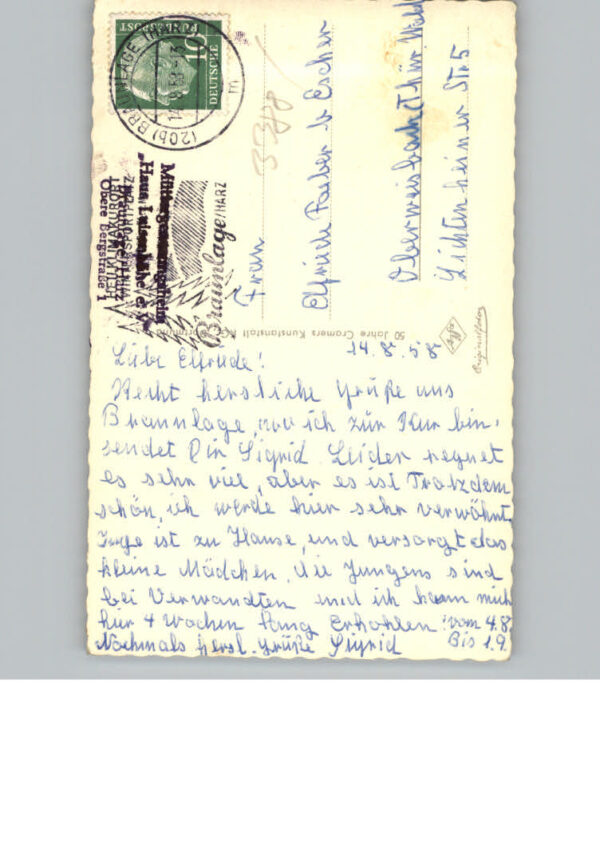 10
DEUTSCHE
BUNDESPOST
(20b) BRAUNLAGE
Braunlage/HARZ
Müttergenesungsheim
Obere Bergstraße 1
3388
Frau
Elfriede Faber b Escher
Oberweisbach Thür Wald
Lichtenheiner Str 5
50 Jahre Cramers Kunstanstalt KG Dortmund
Originalfoto
14.8.58
Liebe Elfriede!
Recht herzliche Grüße aus
Braunlage, wo ich zur Kur bin,
sendet Dir Sigrid. Leider regnet
es sehr viel, aber es ist Trotzdem
schön, ich werde hier sehr verwöhnt
ist zu Hause, und versorgt das
kleine Mädchen, die Jungens sind
bei Verwandten und ich kann mich
hier 4 Wochen lang Erhohlen! vom 4.8.
Nochmals herzl. Grüße Sigrid Bis 1.9.